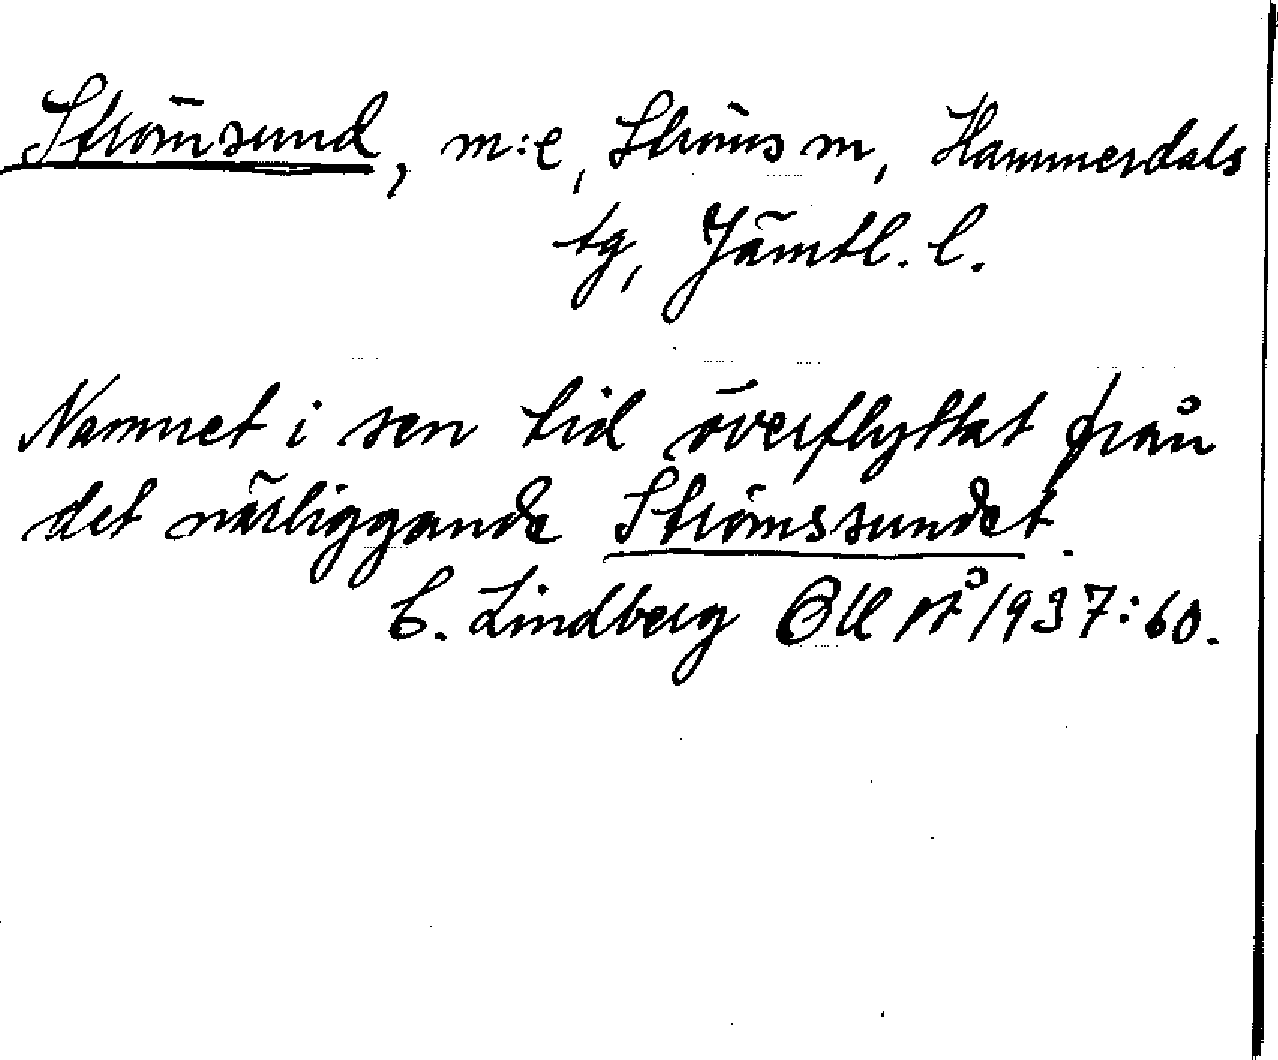 Strömsund, m:e, Ströms m, Hammerdals
tg, Jämtl. l.
Namnet i sen tid överflyttat från
det närliggande Strömssundet.
C. Lindberg 1937:60.